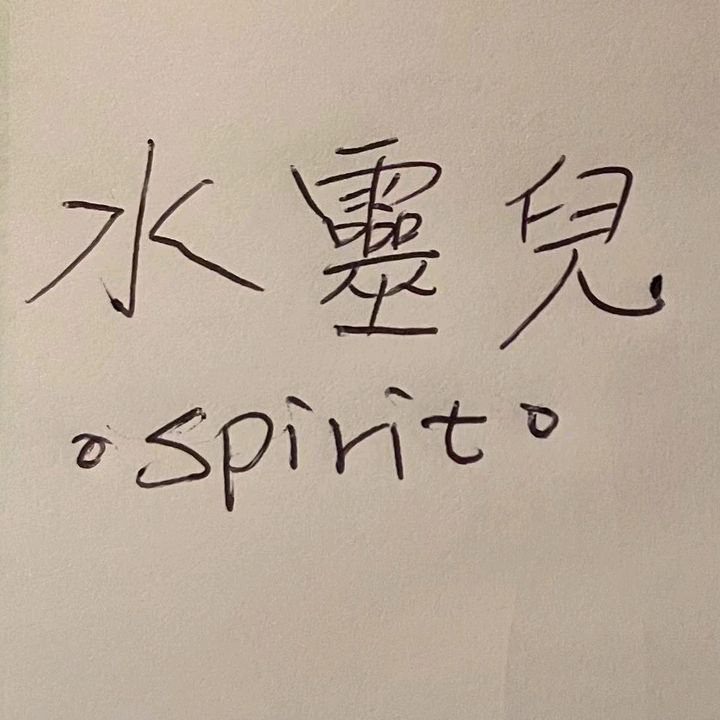 水靈兒
°spirit°